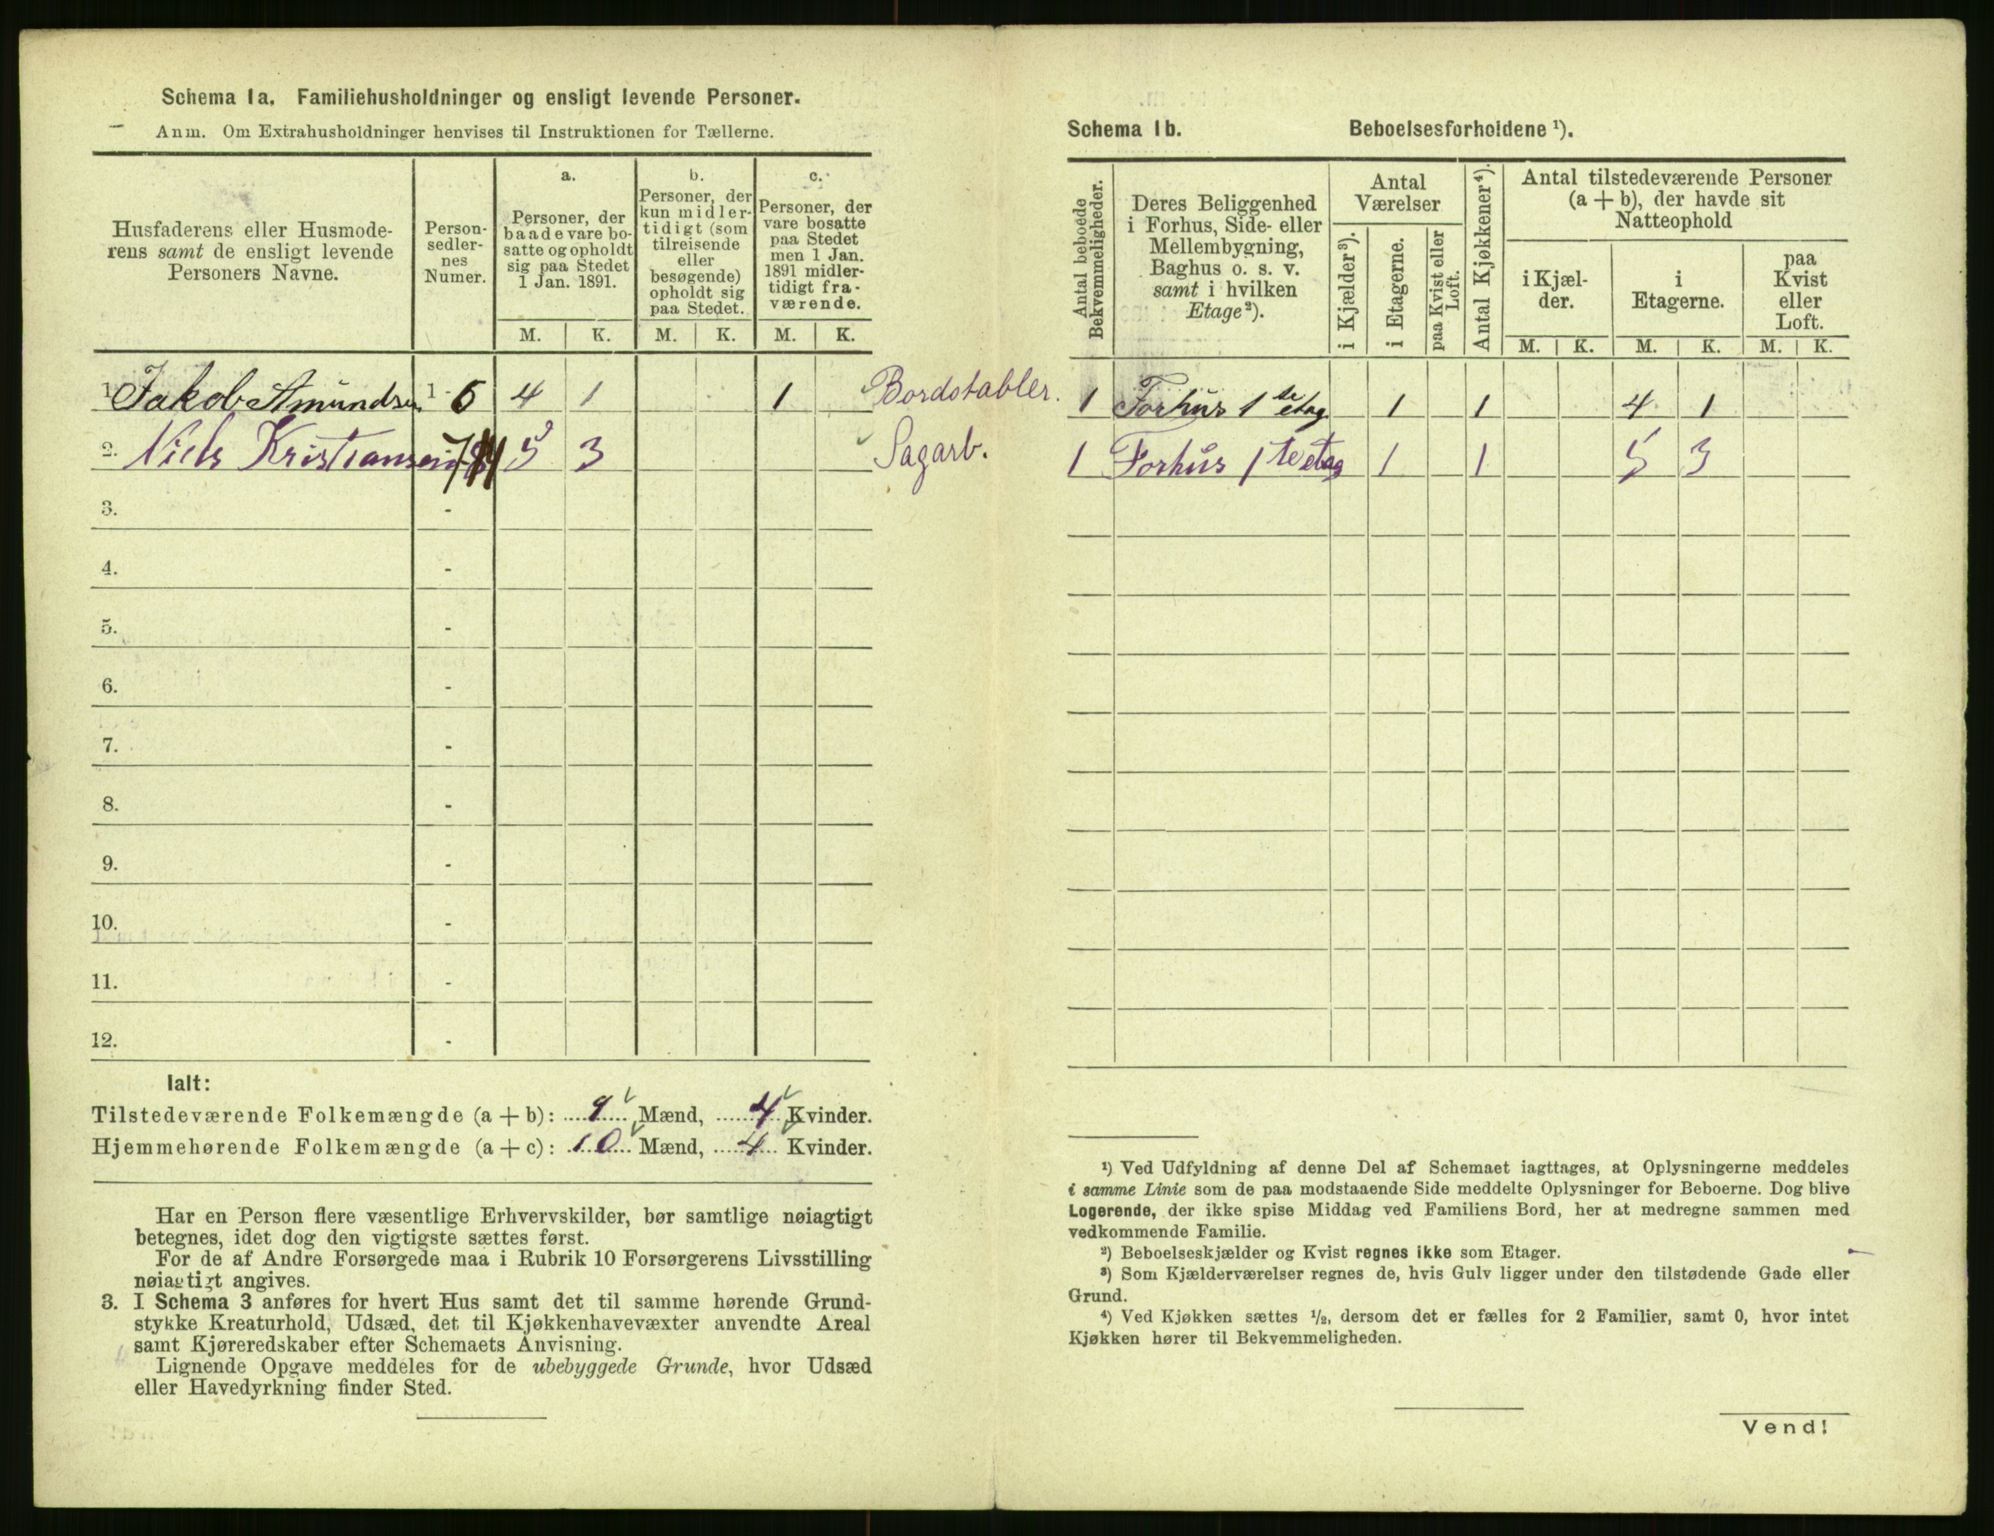 Schema 1a. Familiehusholdninger og ensligt levende Personer.
Anm. Om Extrahusholdninger henvises til Instruktionen for Tællerne.
Husfaderens eller Husmoderens samt de ensligt levende Personers Navne.
Person-sedlernes Numer.
a.
Personer, der baade vare bosatte og opholdt sig paa Stedet 1 Jan. 1891.
b.
Personer, der kun midlertidigt (som tilreisende eller besøgende) opholdt sig paa Stedet.
c.
Personer, der vare bosatte paa Stedet men 1 Jan. 1891 midlertidigt fraværende.
M. K. M. K. M. K.
1. Jakob Amundsen 1 - 6 4 1 1 Bordstabler.
2. Niels Kristiansen 7 5 3 Sagarb.
3. -
4. -
5. -
6. -
7. -
8. -
9. -
10. -
11. -
12. -
Ialt:
Tilstedeværende Folkemængde (a + b): 9 Mænd, 4 Kvinder.
Hjemmehørende Folkemængde (a + c): 10 Mænd, 4 Kvinder.
Har en Person flere væsentlige Erhvervskilder, bør samtlige nøiagtigt
betegnes, idet dog den vigtigste sættes først.
For de af Andre Forsørgede maa i Rubrik 10 Forsørgerens Livsstilling
nøiagtigt angives.
3. I Schema 3 anføres for hvert Hus samt det til samme hørende Grund-
stykke Kreaturhold, Udsæd, det til Kjøkkenhavevæxter anvendte Areal
samt Kjøreredskaber efter Schemaets Anvisning.
Lignende Opgave meddeles for de ubebyggede Grunde, hvor Udsæd
eller Havedyrkning finder Sted.
Schema 1b. Beboelsesforholdene ¹).
Antal beboede Bekvemmeligheder.
Deres Beliggenhed i Forhus, Side- eller Mellembygning, Baghus o. s. v. samt i hvilken Etage ²).
Antal Værelser
i Kjælder ³).
i Etagerne.
paa Kvist eller Loft.
Antal Kjøkkener ⁴).
Antal tilstedeværende Personer (a + b), der havde sit Natteophold
i Kjælder.
i Etagerne.
paa Kvist eller Loft.
M. K. M. K. M. K.
1 Forhus 1 te etag 1 1 4 1
1 Forhus 1 te etag 1 1 5 3
¹) Ved Udfyldning af denne Del af Schemaet iagttages, at Oplysningerne meddeles
i samme Linie som de paa modstaaende Side meddelte Oplysninger for Beboerne. Dog blive
Logerende, der ikke spise Middag ved Familiens Bord, her at medregne sammen med
vedkommende Familie.
²) Beboelseskjælder og Kvist regnes ikke som Etager.
³) Som Kjælderværelser regnes de, hvis Gulv ligger under den tilstødende Gade eller
Grund.
⁴) Ved Kjøkken sættes ½, dersom det er fælles for 2 Familier, samt 0, hvor intet
Kjøkken hører til Bekvemmeligheden.
Vend!